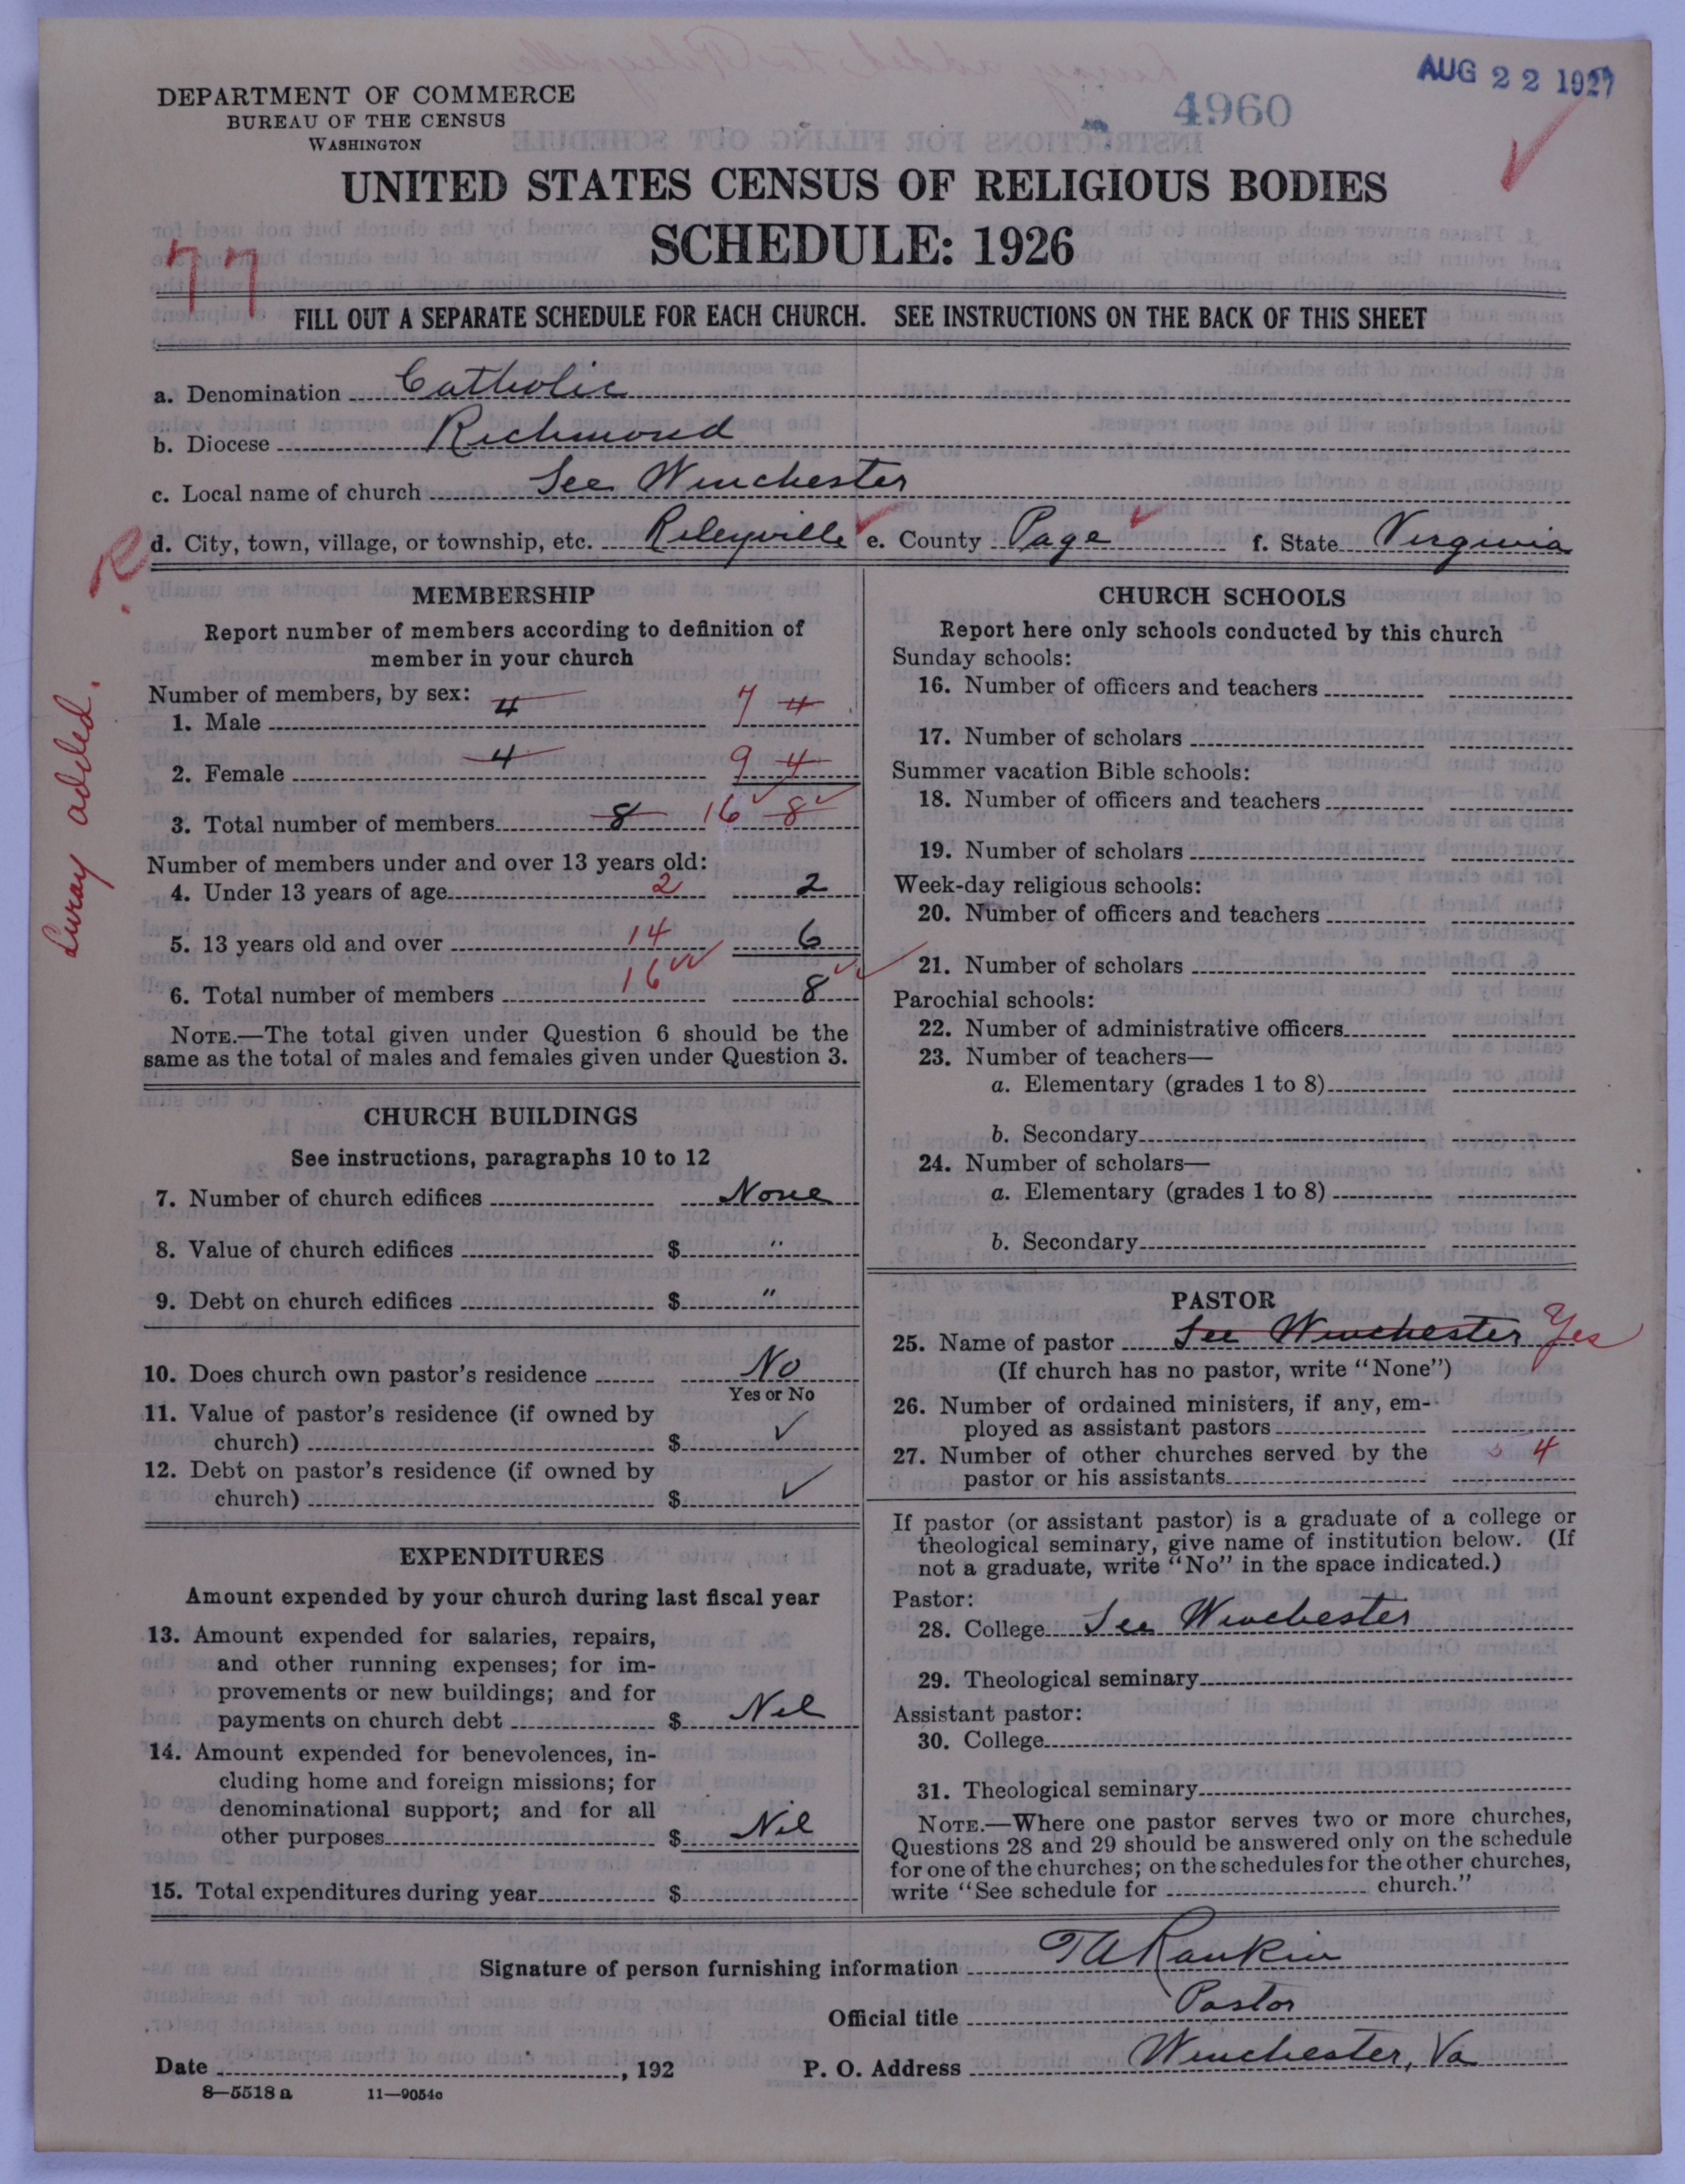 AUG 22 1927
4960
DEPARTMENT OF COMMERCE
BUREAU OF THE CENSUS
WASHINGTON
UNITED STATES CENSUS OF RELIGIOUS BODIES
SCHEDULE: 1926
77
FILL OUT A SEPARATE SCHEDULE FOR EACH CHURCH. SEE INSTRUCTIONS ON THE BACK OF THIS SHEET
a. Denomination Catholic
b. Diocese Richmond
c. Local name of church See Winchester
d. City, town, village, or township, etc. Rileyville e. County Page f. State Virginia
R
Luray added.
MEMBERSHIP
Report number of members according to definition of
member in your church
Number of members, by sex:
1. Male 4 7 4
2. Female 4 9 4
3. Total number of members 8 16 8
Number of members under and over 13 years old:
4. Under 13 years of age 2 2
5. 13 years old and over 14 6
6. Total number of members 16 8
NOTE.—The total given under Question 6 should be the
same as the total of males and females given under Question 3.
CHURCH BUILDINGS
See instructions, paragraphs 10 to 12
7. Number of church edifices None
8. Value of church edifices $ "
9. Debt on church edifices $ "
10. Does church own pastor's residence No
Yes or No
11. Value of pastor's residence (if owned by
church) $ ✓
12. Debt on pastor's residence (if owned by
church) $ ✓
EXPENDITURES
Amount expended by your church during last fiscal year
13. Amount expended for salaries, repairs,
and other running expenses; for im-
provements or new buildings; and for
payments on church debt $ Nil
14. Amount expended for benevolences, in-
cluding home and foreign missions; for
denominational support; and for all
other purposes $ Nil
15. Total expenditures during year $
CHURCH SCHOOLS
Report here only schools conducted by this church
Sunday schools:
16. Number of officers and teachers
17. Number of scholars
Summer vacation Bible schools:
18. Number of officers and teachers
19. Number of scholars
Week-day religious schools:
20. Number of officers and teachers
21. Number of scholars
Parochial schools:
22. Number of administrative officers
23. Number of teachers—
a. Elementary (grades 1 to 8)
b. Secondary
24. Number of scholars—
a. Elementary (grades 1 to 8)
b. Secondary
PASTOR
25. Name of pastor See Winchester Yes
(If church has no pastor, write "None")
26. Number of ordained ministers, if any, em-
ployed as assistant pastors
27. Number of other churches served by the
pastor or his assistants 4
If pastor (or assistant pastor) is a graduate of a college or
theological seminary, give name of institution below. (If
not a graduate, write "No" in the space indicated.)
Pastor:
28. College See Winchester
29. Theological seminary
Assistant pastor:
30. College
31. Theological seminary
NOTE.—Where one pastor serves two or more churches,
Questions 28 and 29 should be answered only on the schedule
for one of the churches; on the schedules for the other churches,
write "See schedule for church."
Signature of person furnishing information T A Rankin
Official title Pastor
Date , 192 P. O. Address Winchester, Va
8—5518 a 11—9054c